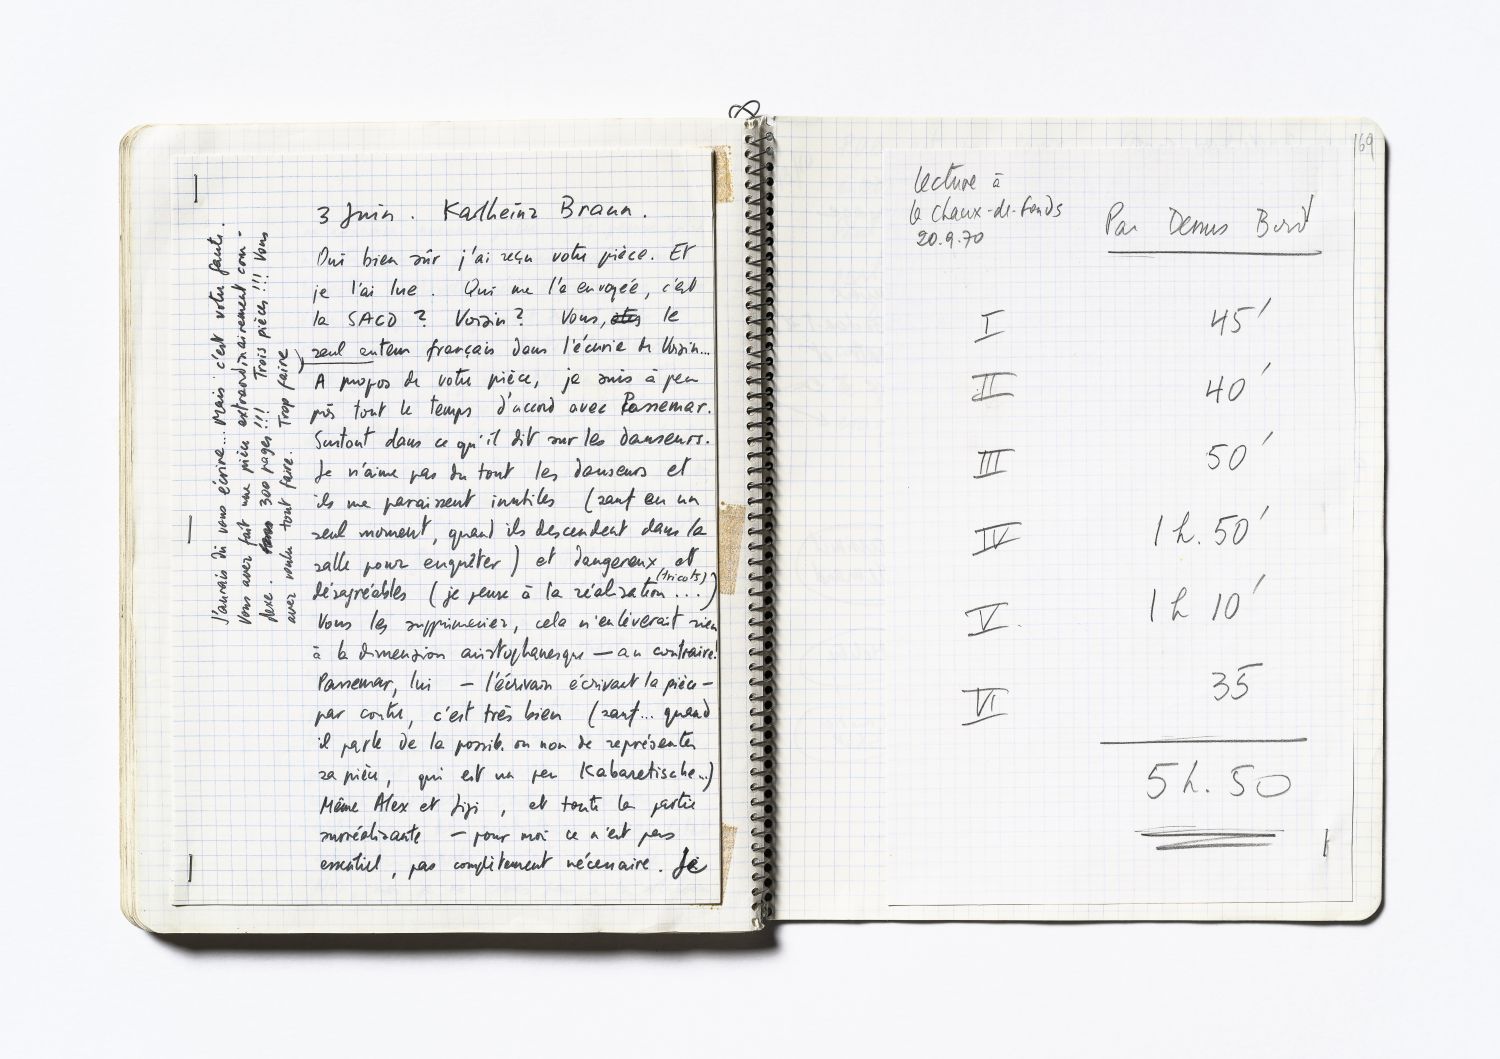 3 Juin. Karlheinz Braun.
Oui bien sûr j'ai reçu votre pièce. Et
je l'ai lue. Qui me l'a envoyée, c'est
la SACD ? Voisin ? Vous, êtes le
seul auteur français dans l'écurie de Voisin...
A propos de votre pièce, je suis à peu
près tout le temps d'accord avec Passemar.
Surtout dans ce qu'il dit sur les danseurs.
Je n'aime pas du tout les danseurs et
ils me paraissent inutiles (sauf en un
seul moment, quand ils descendent dans la
salle pour enquêter) et dangereux, et
désagréables (je pense à la réalisation...)
(tricots)
Vous les supprimeriez, cela n'enlèverait rien
à la dimension aristophanesque — au contraire!
Passemar, lui — l'écrivain écrivant la pièce —
par contre, c'est très bien (sauf... quand
il parle de la possib. ou non de représenter
sa pièce, qui est un peu Kabaretische..)
Même Alex et Jiji, et toute la partie
surréalisante — pour moi ce n'est pas
essentiel, pas complètement nécessaire. Je
J'aurais dû vous écrire... Mais c'est votre faute.
Vous avez fait une pièce extraordinairement com-
plexe. 300 pages !!! Trois pièces !!! Vous
avez voulu tout faire. Trop faire
169
Lecture à
la Chaux-de-Fonds
20.9.70
Par
I 45'
II 40'
III 50'
IV 1 h. 50'
V. 1 h 10'
VI 35
5 h. 50